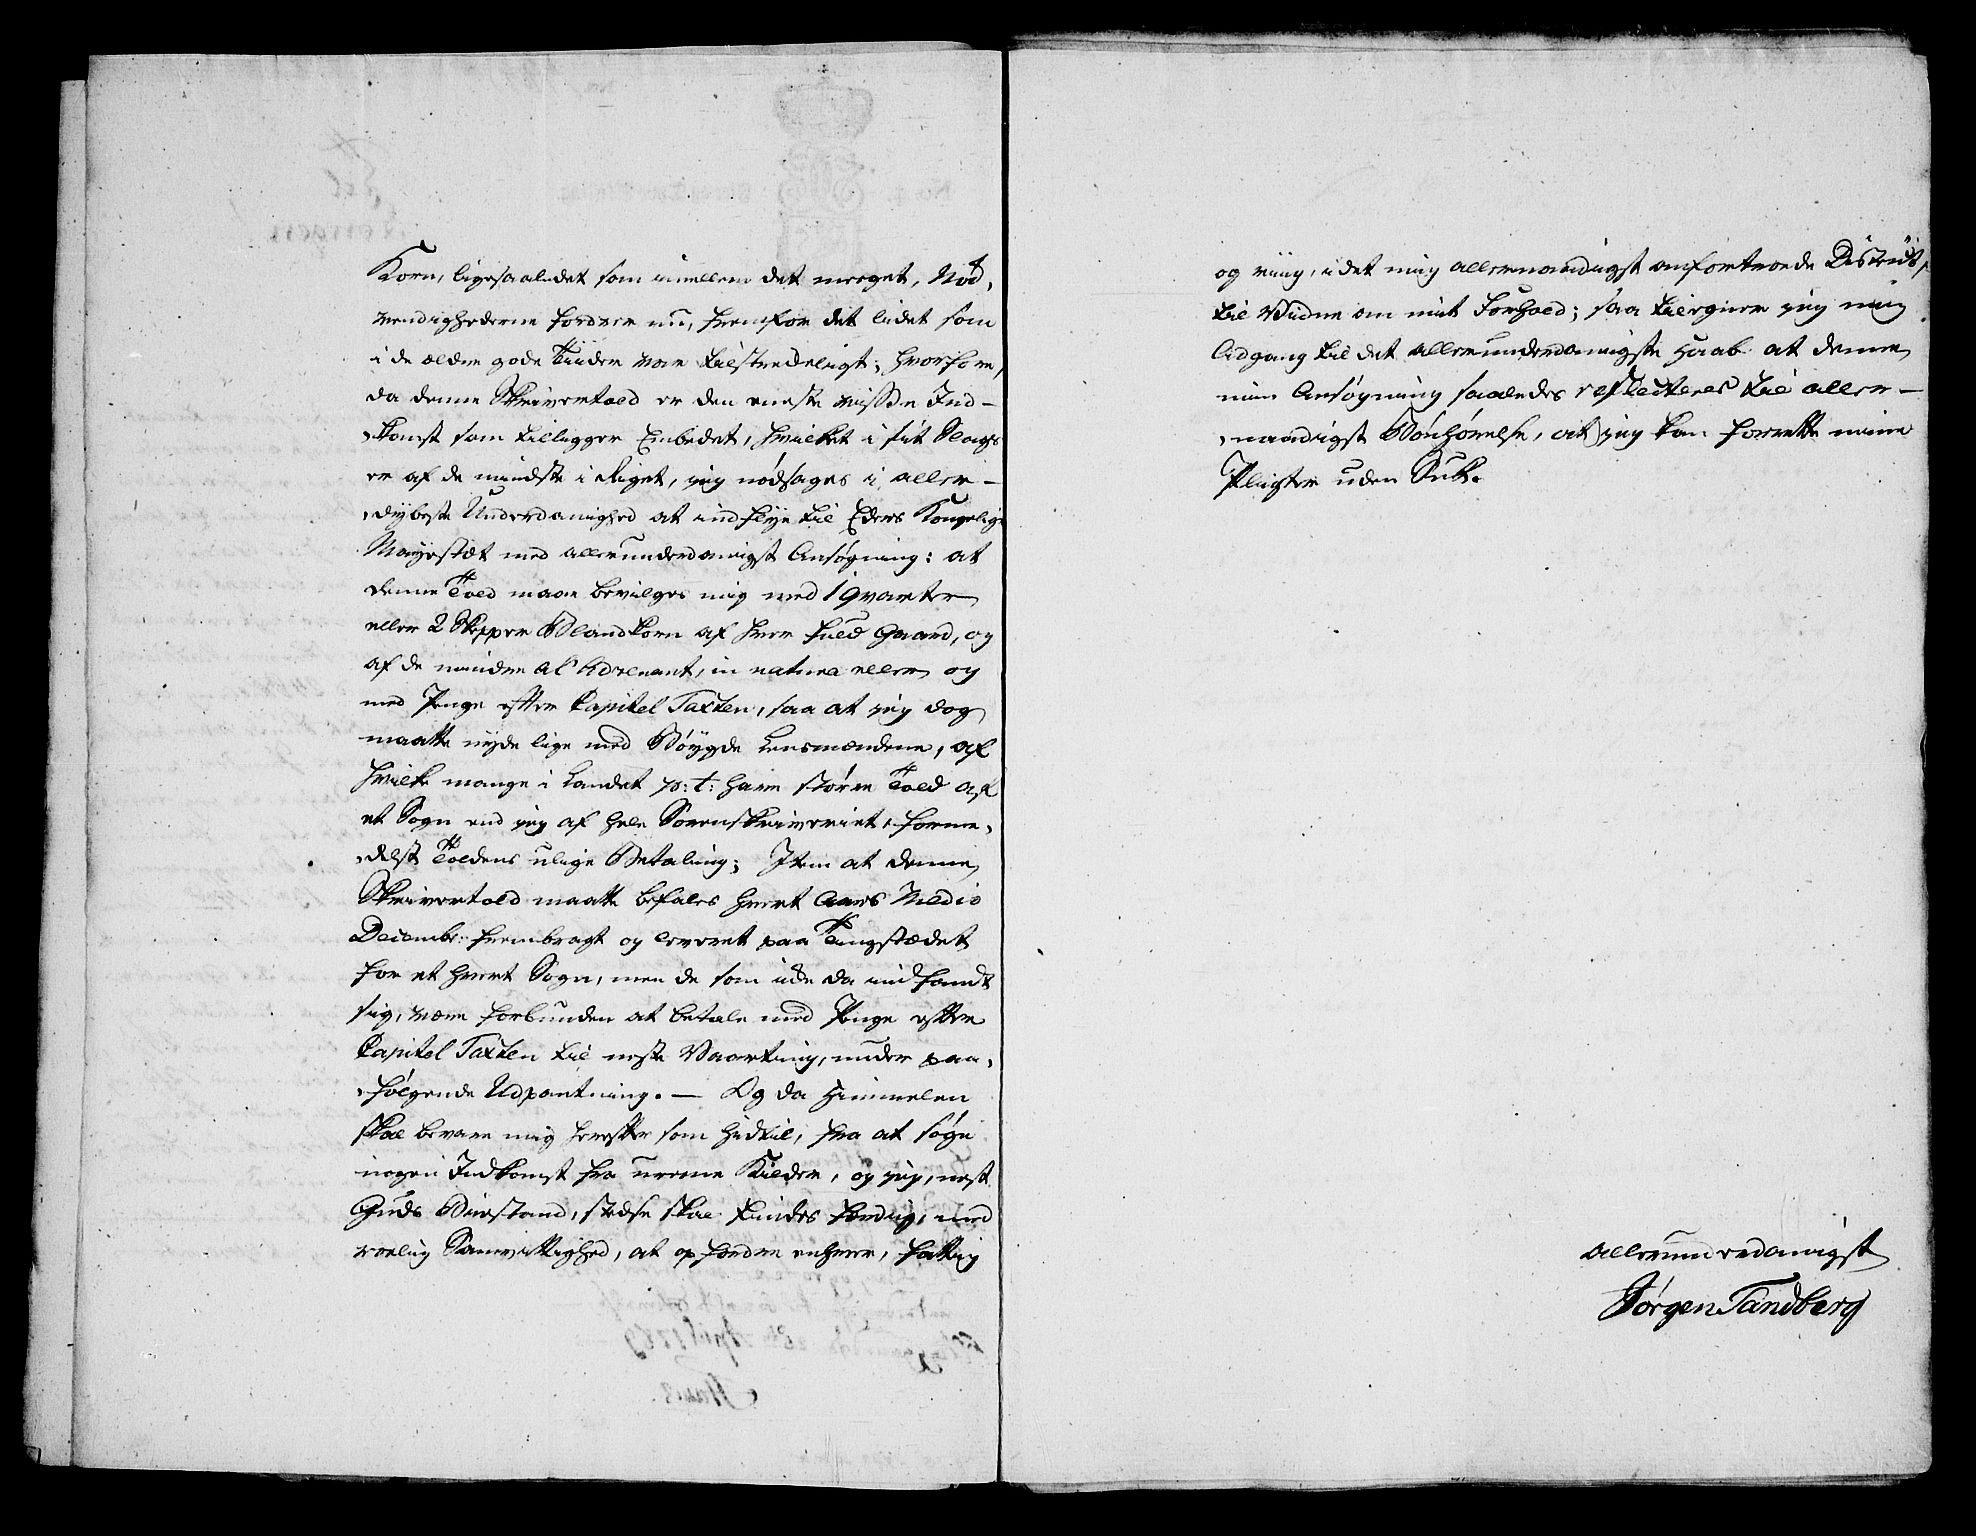 Korn, ligesaaledet som imellem det meeget, Nød,
vendighederne fordrer nu, fremfor det lidet som
i de ældre gode Tiider var tilstredeligt; hvorfore,
da denne Skrivertold er den eneste visse Ind-
komst som tilligger Embedet, hvilket i sit Slags
er af de mindste i Riget, jeg nødsages i aller-
dybeste Underdanighed at indflye til Eders Kongelige
Mayestæt med allerunderdanigst Ansøgning: at
denne Told maae bevilges mig med 1 Qvarter
eller 2 Skepper Blandkorn af hver fuld Gaard, og
af de mindre al' Advenant, in natura eller og
med Penge efter Capitel Taxten, saa at jeg dog
maatte nyde lige med Bøygde Lensmændene, af
hvilke mange i Landet p: t: have større Told af
et Sogn end jeg af hele Sorenskriveriet, forme,
delst Toldens ulige Betaling; Item at denne
Skrivertold maatte befales hvert Aars Medio
Decembr: frembragt og leveret paa Tingstædet
for et hvert Sogn, men de som icke da indfandt
sig, være forbunden at betale med Penge efter
Capitel Taxten til neste Vaarting, under paa,
følgende Udpantning. — Og da Himmelen
skal bevare mig herefter som hidtil, fra at søge
nogen Indkomst fra ureene Kilder, og jeg, nest
Guds Biestand, stedse skal findes færdig, med
roelig Samvittighed, at opfordre enhver, fattig
og riig, i det mig allernaadigst anfortroede District,
til Vidne om mit Forhold; saa tilegner jeg mig
Adgang til det allerunderdanigste Haab at denne
min Ansøgning saaledes reflecteres til aller-
naadigst Bønhørelse, at jeg kan forrette mine
Pligter uden Suk.
allerunderdanigst
Jørgen Sandberg